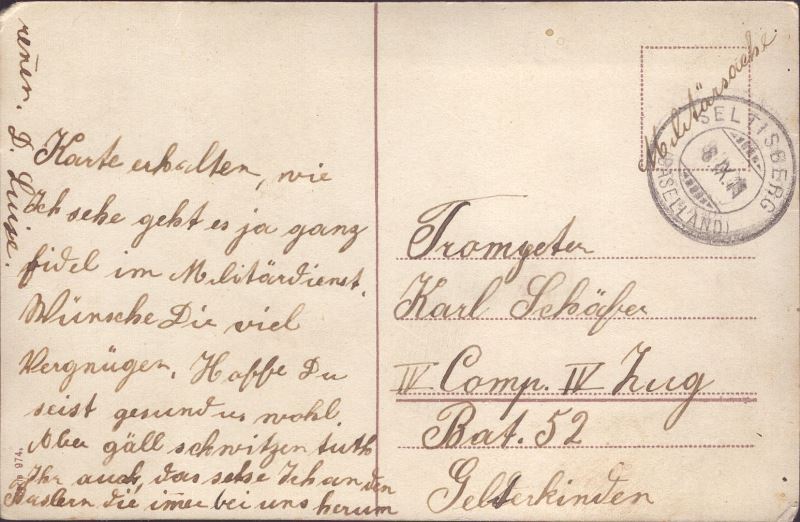 Karte erhalten, wie
Ich sehe geht es ja ganz
fidel im Militärdienst.
Wünsche Dir viel
Vergnügen. Hoffe Du
seist gesund u. wohl
Aber gäll schwitzen tuth
Ihr auch, das sehe Ich an den
Baslern die im̅er bei uns herum
ren̅en. D. Luise.
Militärsache
SELTISBERG
(BASELLAND)
Trompeter
Karl Schäfer
IV Comp. IV Zug
Bat. 52
Gelterkinden
974.